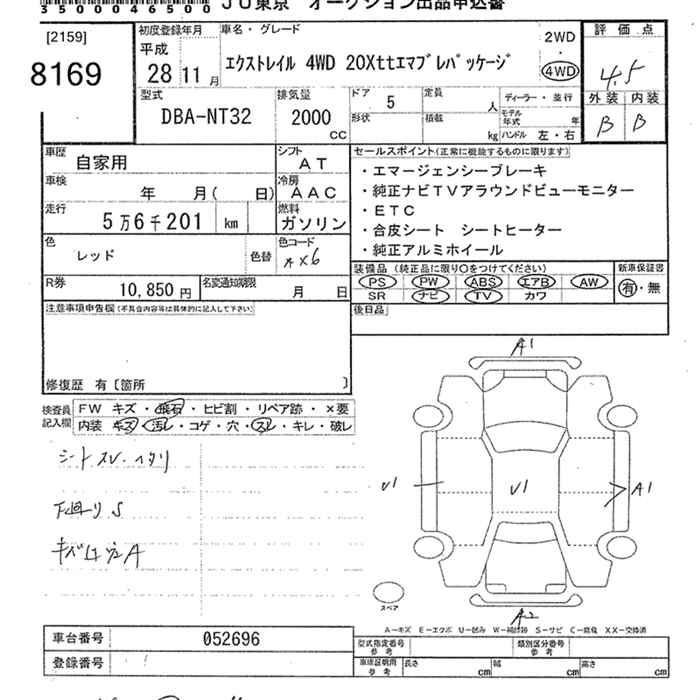 35000046500 JU東京 オークション出品申込書
[2159]
8169
初度登録年月
平成
28 11 月
車名・グレード
エクストレイル 4WD 20Xttエマブレパッケージ
2WD
・
4WD
評価点
4.5
外装 内装
B B
型式
DBA-NT32
排気量
2000
CC
ドア 5
形状
定員 人
積載 kg
ディーラー・並行
モデル年式 年
ハンドル 左・右
車歴 自家用
シフト AT
車検 年 月( 日)
冷房 AAC
走行 5万6千201 km
燃料 ガソリン
色 レッド
色替
色コード
R券 10,850 円
名変通知期限 月 日
セールスポイント(正常に機能するものに限ります)
・エマージェンシーブレーキ
・純正ナビTVアラウンドビューモニター
・ETC
・合皮シート シートヒーター
・純正アルミホイール
装備品(純正品に限り○をつけてください)
PS PW ABS エアB AW
SR ナビ TV カワ
新車保証書
有・無
後日品
注意事項申告欄(不具合内容等は具体的に記入して下さい)
修復歴 有〔箇所 〕
検査員記入欄
FW キズ・飛石・ヒビ割・リペア跡・×要
内装 キズ・汚レ・コゲ・穴・スレ・キレ・破レ
シートスレ・ヘタリ
下回りS
A
A1
U1
U1
A1
A2
スペア
A−キズ E−エクボ U−凹み W−補修跡 S−サビ C−腐食 XX−交換済
車台番号 052696
登録番号
型式指定番号参考
類別区分番号参考
車庫証明用参考
長さ cm
幅 cm
高さ cm